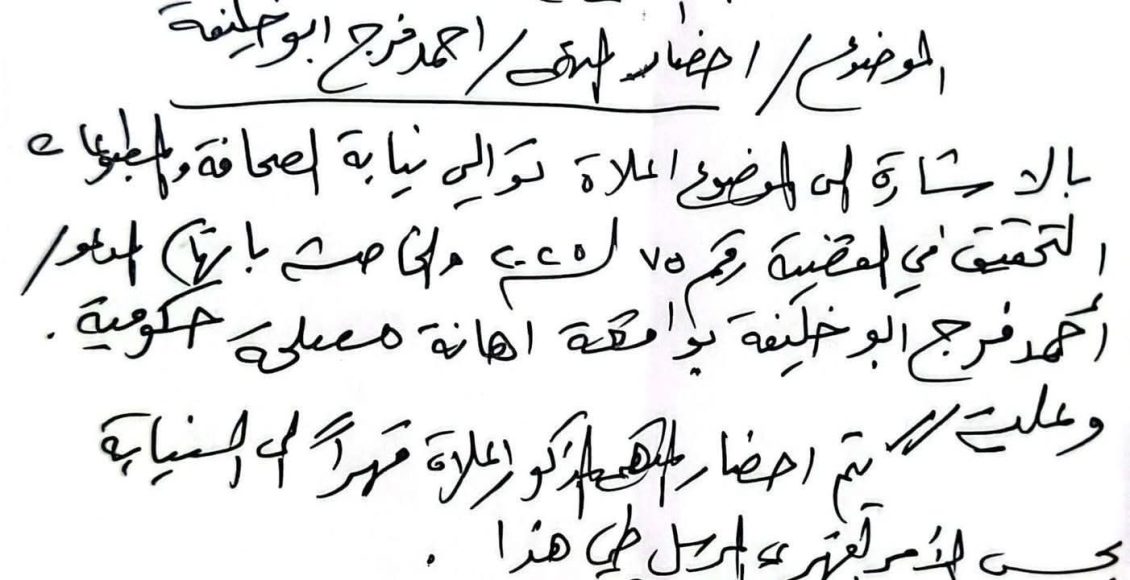 الموضوع/ احضار المتهم/ احمد فرج ابو خليفة
بالاشارة الى الموضوع اعلاة توالي نيابة الصحافة والمطبوعات
التحقيق في القضية رقم ٧٥ لـ ٢٠٢٥ والخاصة باتهام المدعو/
أحمد فرج ابو خليفة بواقعة اهانة مصلحة حكومية .
وعلية // يتم احضار المتهم المذكور اعلاة قهراً الى النيابة
بحسب الأمر القهري المرسل طي هذا .